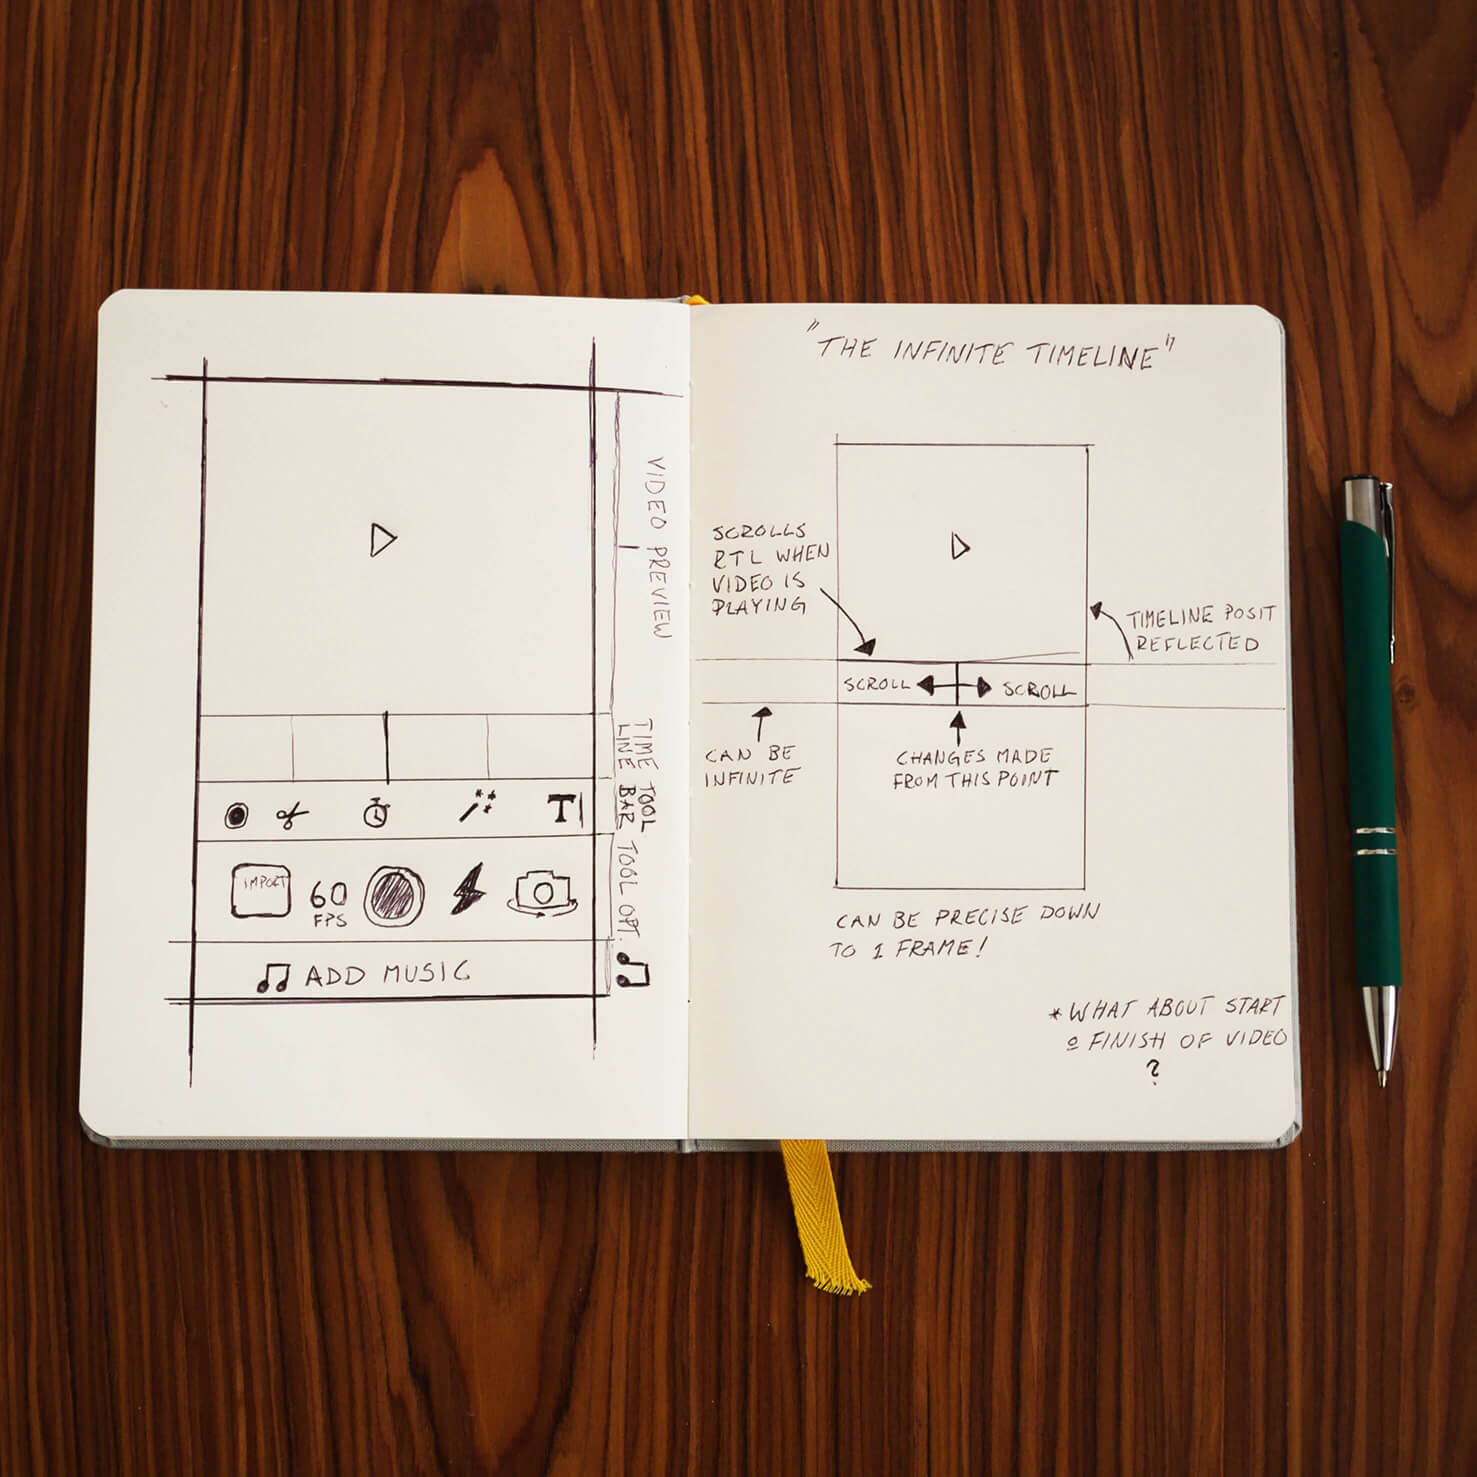 VIDEO PREVIEW
TIME
LINE
TOOL
BAR
TOOL OPT.
T
IMPORT
60
FPS
ADD MUSIC
"THE INFINITE TIMELINE"
SCROLLS
RTL WHEN
VIDEO IS
PLAYING
TIMELINE POSIT
REFLECTED
SCROLL
SCROLL
CAN BE
INFINITE
CHANGES MADE
FROM THIS POINT
CAN BE PRECISE DOWN
TO 1 FRAME!
*WHAT ABOUT START
o FINISH OF VIDEO
?